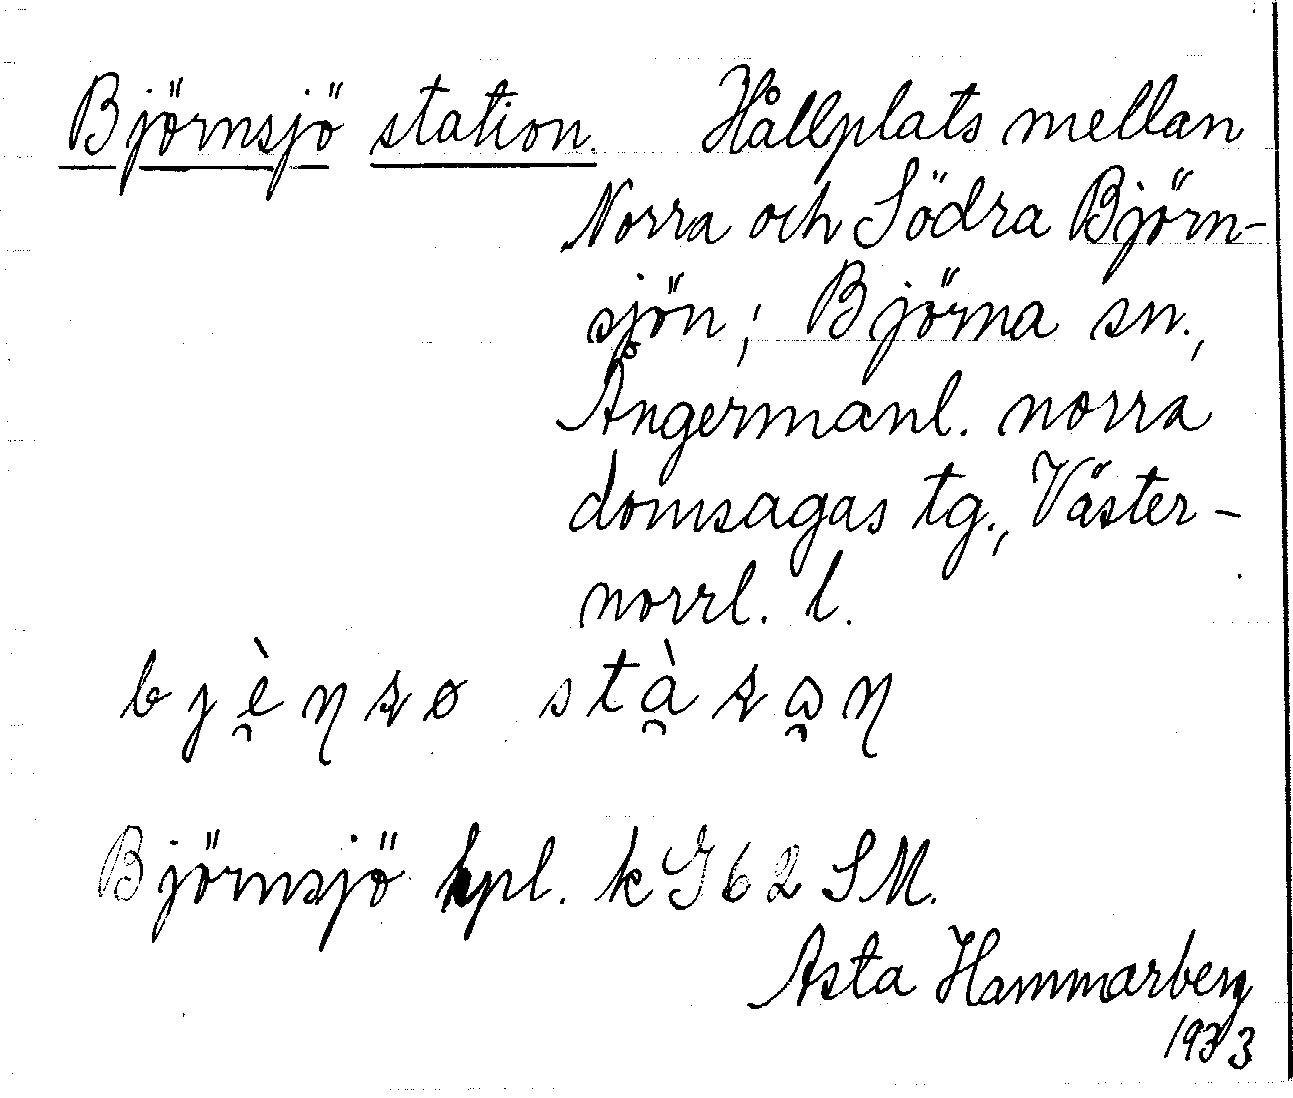 Björnsjö station. Hållplats mellan
Norra och Södra Björn-
sjön; Björna sn.,
Ångermanl. norra
domsagas tg., Väster-
norrl. l.
Björnsjö hpl. k G 62 SM.
Asta Hammarberg
1933